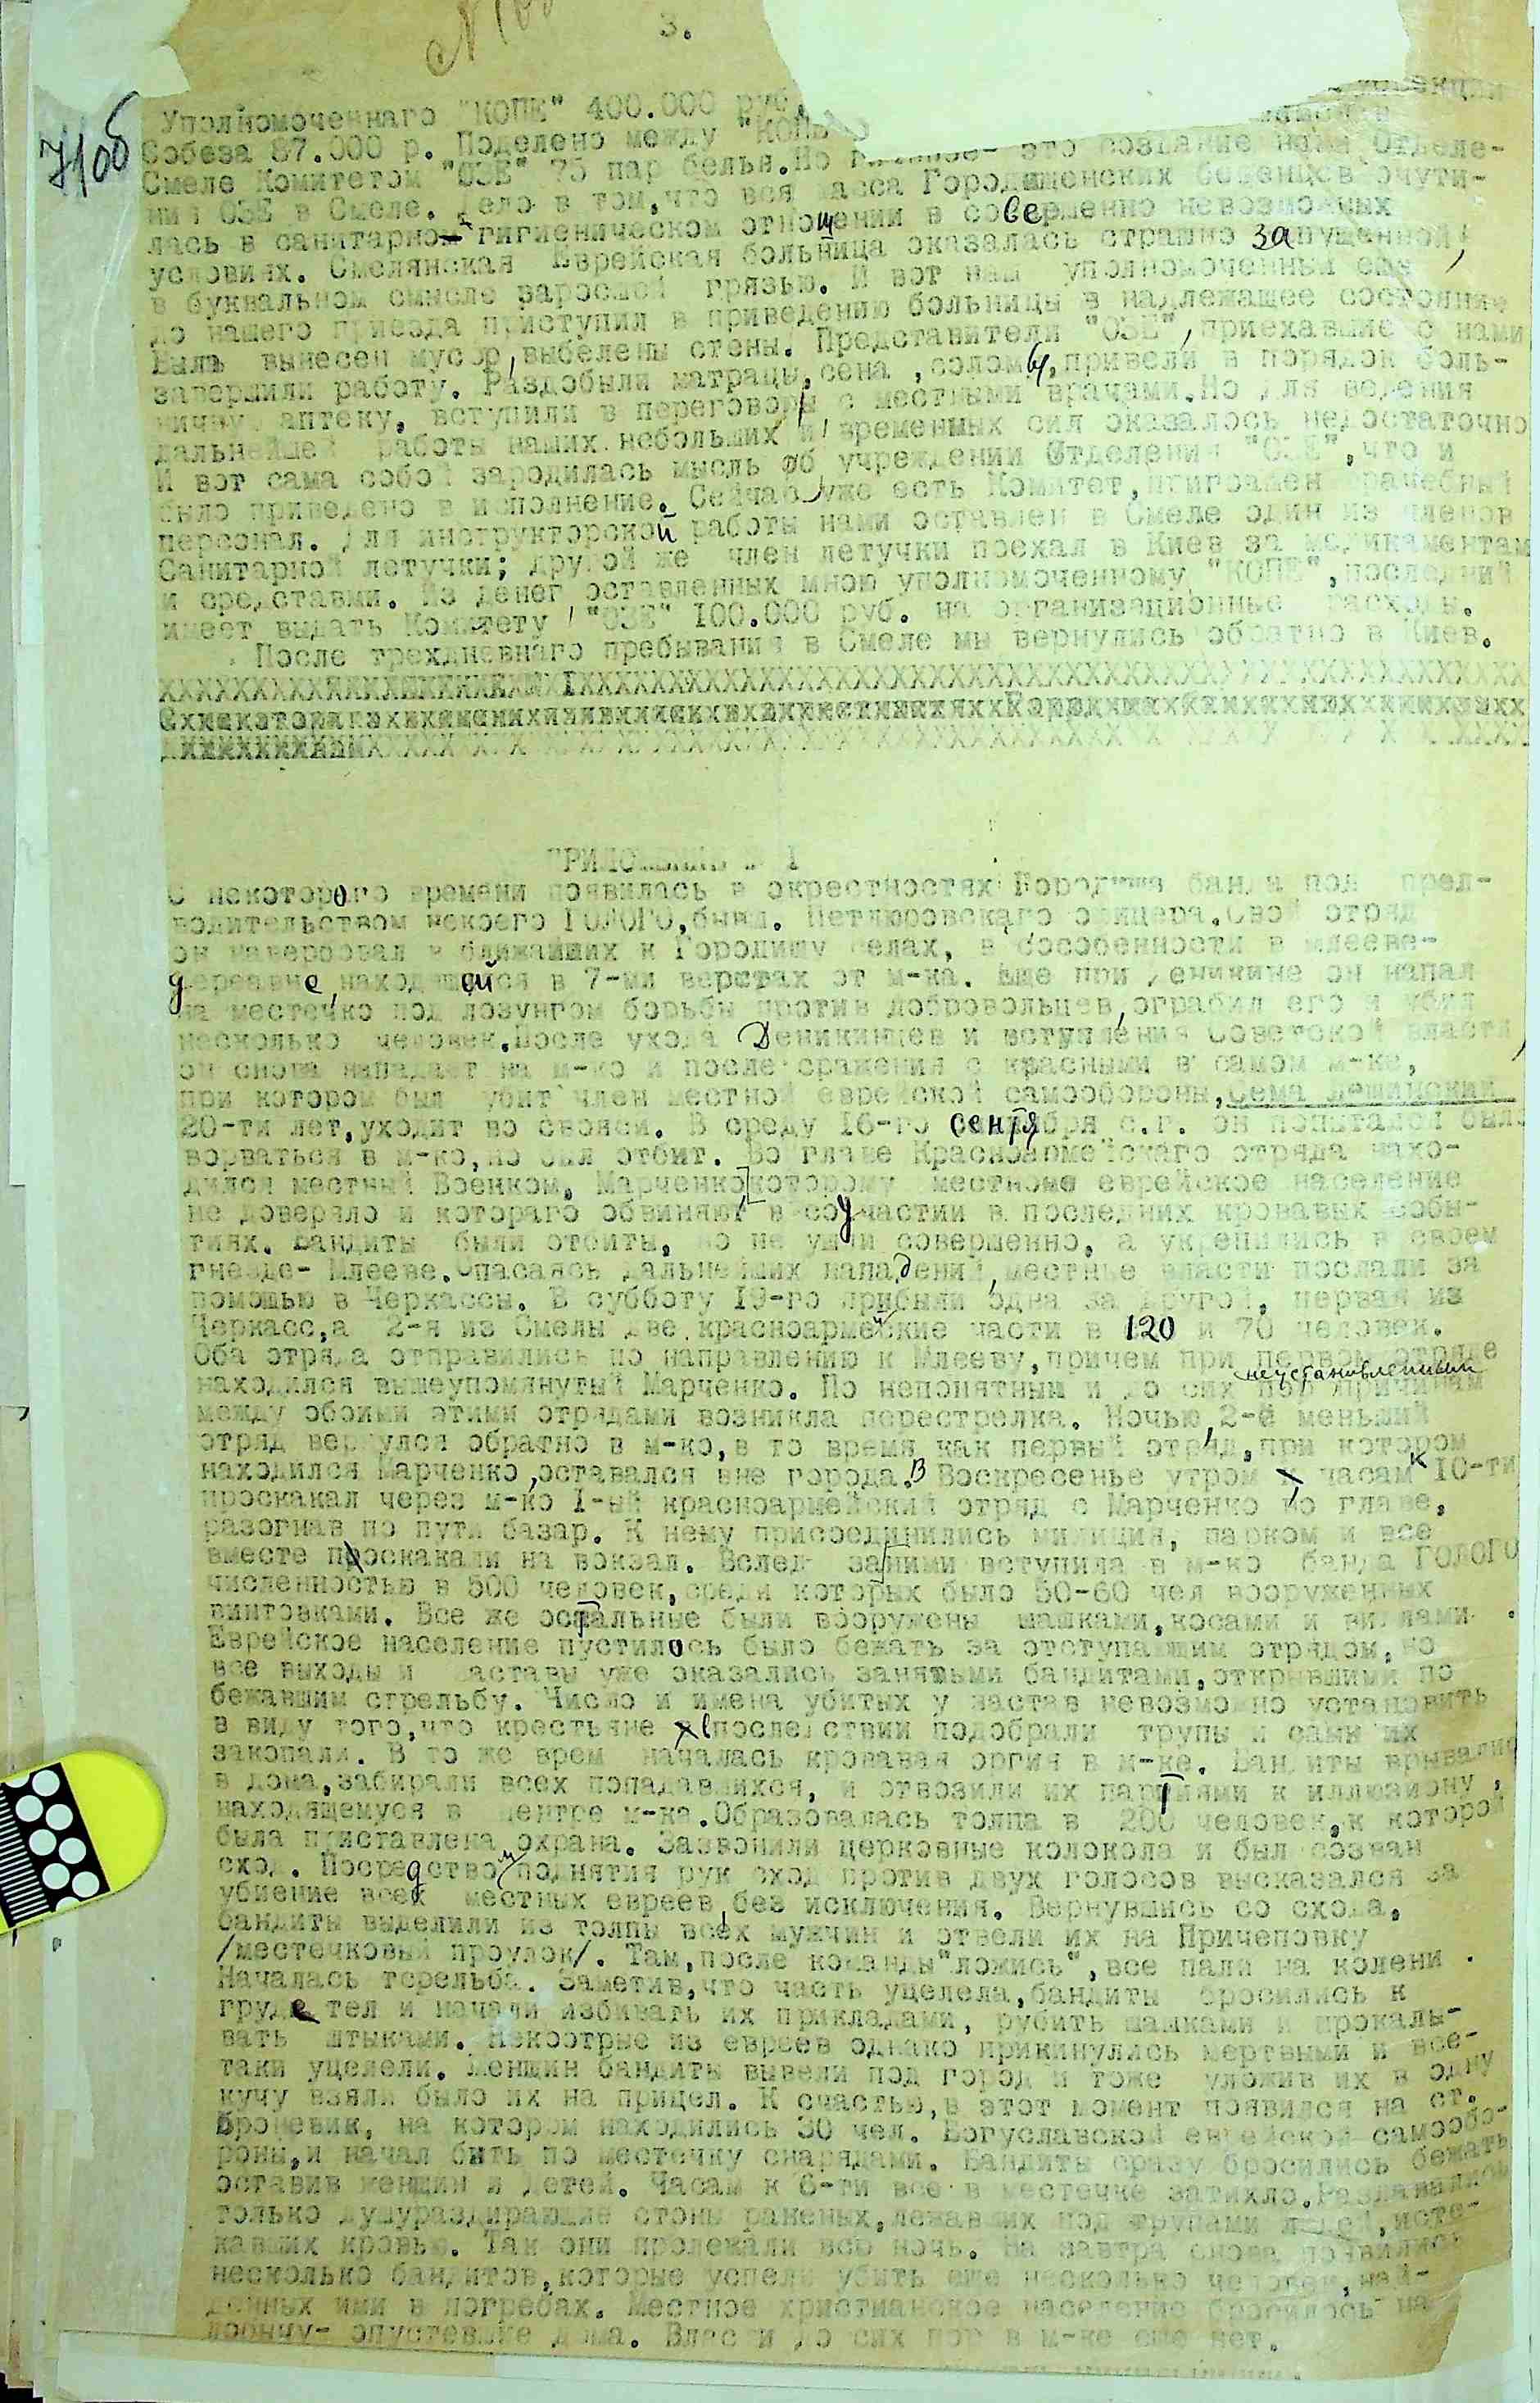 3.
71об
Уполномоченнаго "КОПЕ" 400.000 руб.
Собеза 87.000 р. Поделено между "КОПЕ
Смеле Комитетом "ОЗЕ" 75 пар белья. Но это создание нами Отделе-
ния ОЗЕ в Смеле. Дело в том, что вся масса Городищенских беженцев очути-
лась в санитарно-гигиеническом отношении в совершенно невозможных
условиях. Смелянская Еврейская больница оказалась страшно запущенной,
в буквальном смысле заросшей грязью. И вот наш уполномоченный еще
до нашего приезда приступил в приведению больницы в надлежащее состояние
Былъ вынесен мусор, выбелены стены. Представители "ОЗЕ", приехавшие с нами
завершили работу. Раздобыли матрацы, сена, соломы, привели в порядок боль-
ничную аптеку, вступили в переговоры с местными врачами. Но для ведения
дальнейшей работы наших небольших и временных сил оказалось недостаточно
И вот сама собой зародилась мысль об учреждении Отделения "ОЗЕ", что и
было приведено в исполнение. Сейчас уже есть Комитет, приглашен врачебный
персонал. Для инструкторской работы нами оставлен в Смеле один из членов
Санитарной летучки; другой же член летучки поехал в Киев за медикаментам
и средствами. Из денег оставленных мною уполномоченному "КОПЕ", последний
имеет выдать Комитету "ОЗЕ" 100.000 руб. на организационные расходы.
После трехдневнаго пребывания в Смеле мы вернулись обратно в Киев.
ПРИЛОЖЕНИЕ № 1
С некоторого времени появилась в окрестностях Городища банда под пред-
водительством некоего ГОЛОГО, бывш. Петлюровскаго офицера. Свой отряд
он навербовал в ближайших к Городищу селах, в особенности в Млееве-
деревне, находящейся в 7-ми верстах от м-ка. Еще при Деникине он напал
на местечко под лозунгом борьбы против добровольцев, ограбил его и убил
несколько человек. После ухода Деникинцев и вступления Советской власти,
он снова нападает на м-ко и после сражения с красными в самом м-ке,
при котором был убит член местной еврейской самообороны, Сема
20-ти лет, уходит во свояси. В среду 16-го сентября с.г. он попытался был
ворваться в м-ко, но был отбит. Во главе Красноармейскаго отряда нахо-
дился местный Военком, Марченко, которому местноме еврейское население
не доверяло и котораго обвиняют в соучастии в последних кровавых собы-
тиях. Бандиты были отбиты, но не ушли совершенно, а укрепились в своем
гнезде- Млееве. Опасаясь дальнейших нападений, местные власти послали за
помощью в Черкассы. В субботу 19-го прибыли одна за другой, первая из
Черкасс, а 2-я из Смелы две красноармейские части в 120 и 70 человек.
Оба отряда отправились по направлению к Млееву, причем при первом отряде
находился вышеупомянутый Марченко. По непонятным и до сих пор неустановленным причинам
между обоими этими отрядами возникла перестрелка. Ночью, 2-й меньший
отряд вернулся обратно в м-ко, в то время как первый отряд, при котором
находился Марченко, оставался вне города. В Воскресенье утром часам к 10-ти
проскакал через м-ко 1-ый красноармейский отряд с Марченко во главе,
разогнав по пути базар. К нему присоединились милиция, парком и все
вместе проскакали на вокзал. Вслед за ними вступила в м-ко банда ГОЛОГО
численностью в 500 человек, среди которых было 50-60 чел вооруженных
винтовками. Все же остальные были вооружены шашками, косами и вилами.
Еврейское население пустилось было бежать за отступавшим отрядом, но
все выходы и заставы уже оказались занятыми бандитами, открывшими по
бежавшим стрельбу. Число и имена убитых у застав невозможно установить
в виду того, что крестьяне впоследствии подобрали трупы и сами их
закопали. В то же врем началась кровавая оргия в м-ке. Бандиты врывались
в дома, забирали всех попадавшихся, и отвозили их партиями к иллюзиону,
находящемуся в центре м-ка. Образовалась толпа в 200 человек, к которой
была приставлена охрана. Зазвонили церковные колокола и был созван
сход. Посредством поднятия рук сход против двух голосов высказался за
убиение всех местных евреев, без исключения. Вернувшись со схода,
бандиты выделили из толпы всех мужчин и отвели их на Причеповку
/местечковый проулок/. Там, после команды "ложись", все пали на колени.
Началась терельба. Заметив, что часть уцелела, бандиты бросились к
груде тел и начали избивать их прикладами, рубить шашками и прокалы-
вать штыками. Некоотрые из евреев однако прикинулись мертвыми и все-
таки уцелели. Женщин бандиты вывели под город и тоже уложив их в одну
кучу взяли было их на прицел. К счастью, в этот момент появился на ст.
броневик, на котором находились 30 чел. Богуславской еврейской самообо-
роны, и начал бить по местечку снарядами. Бандиты сразу бросились бежать
оставив женщин и детей. Часам к 6-ти все в местечке затихло. Раздавались
только душураздирающие стоны раненых, лежавших под трупами людей, исте-
кавших кровью. Так они пролежали всю ночь. На завтра снова появились
несколько бандитов, которые успели убить еще несколько человек, най-
денных ими в погребах. Местное христианское население бросилось на
опустевшие дома. Власти до сих пор в м-ке еще нет.